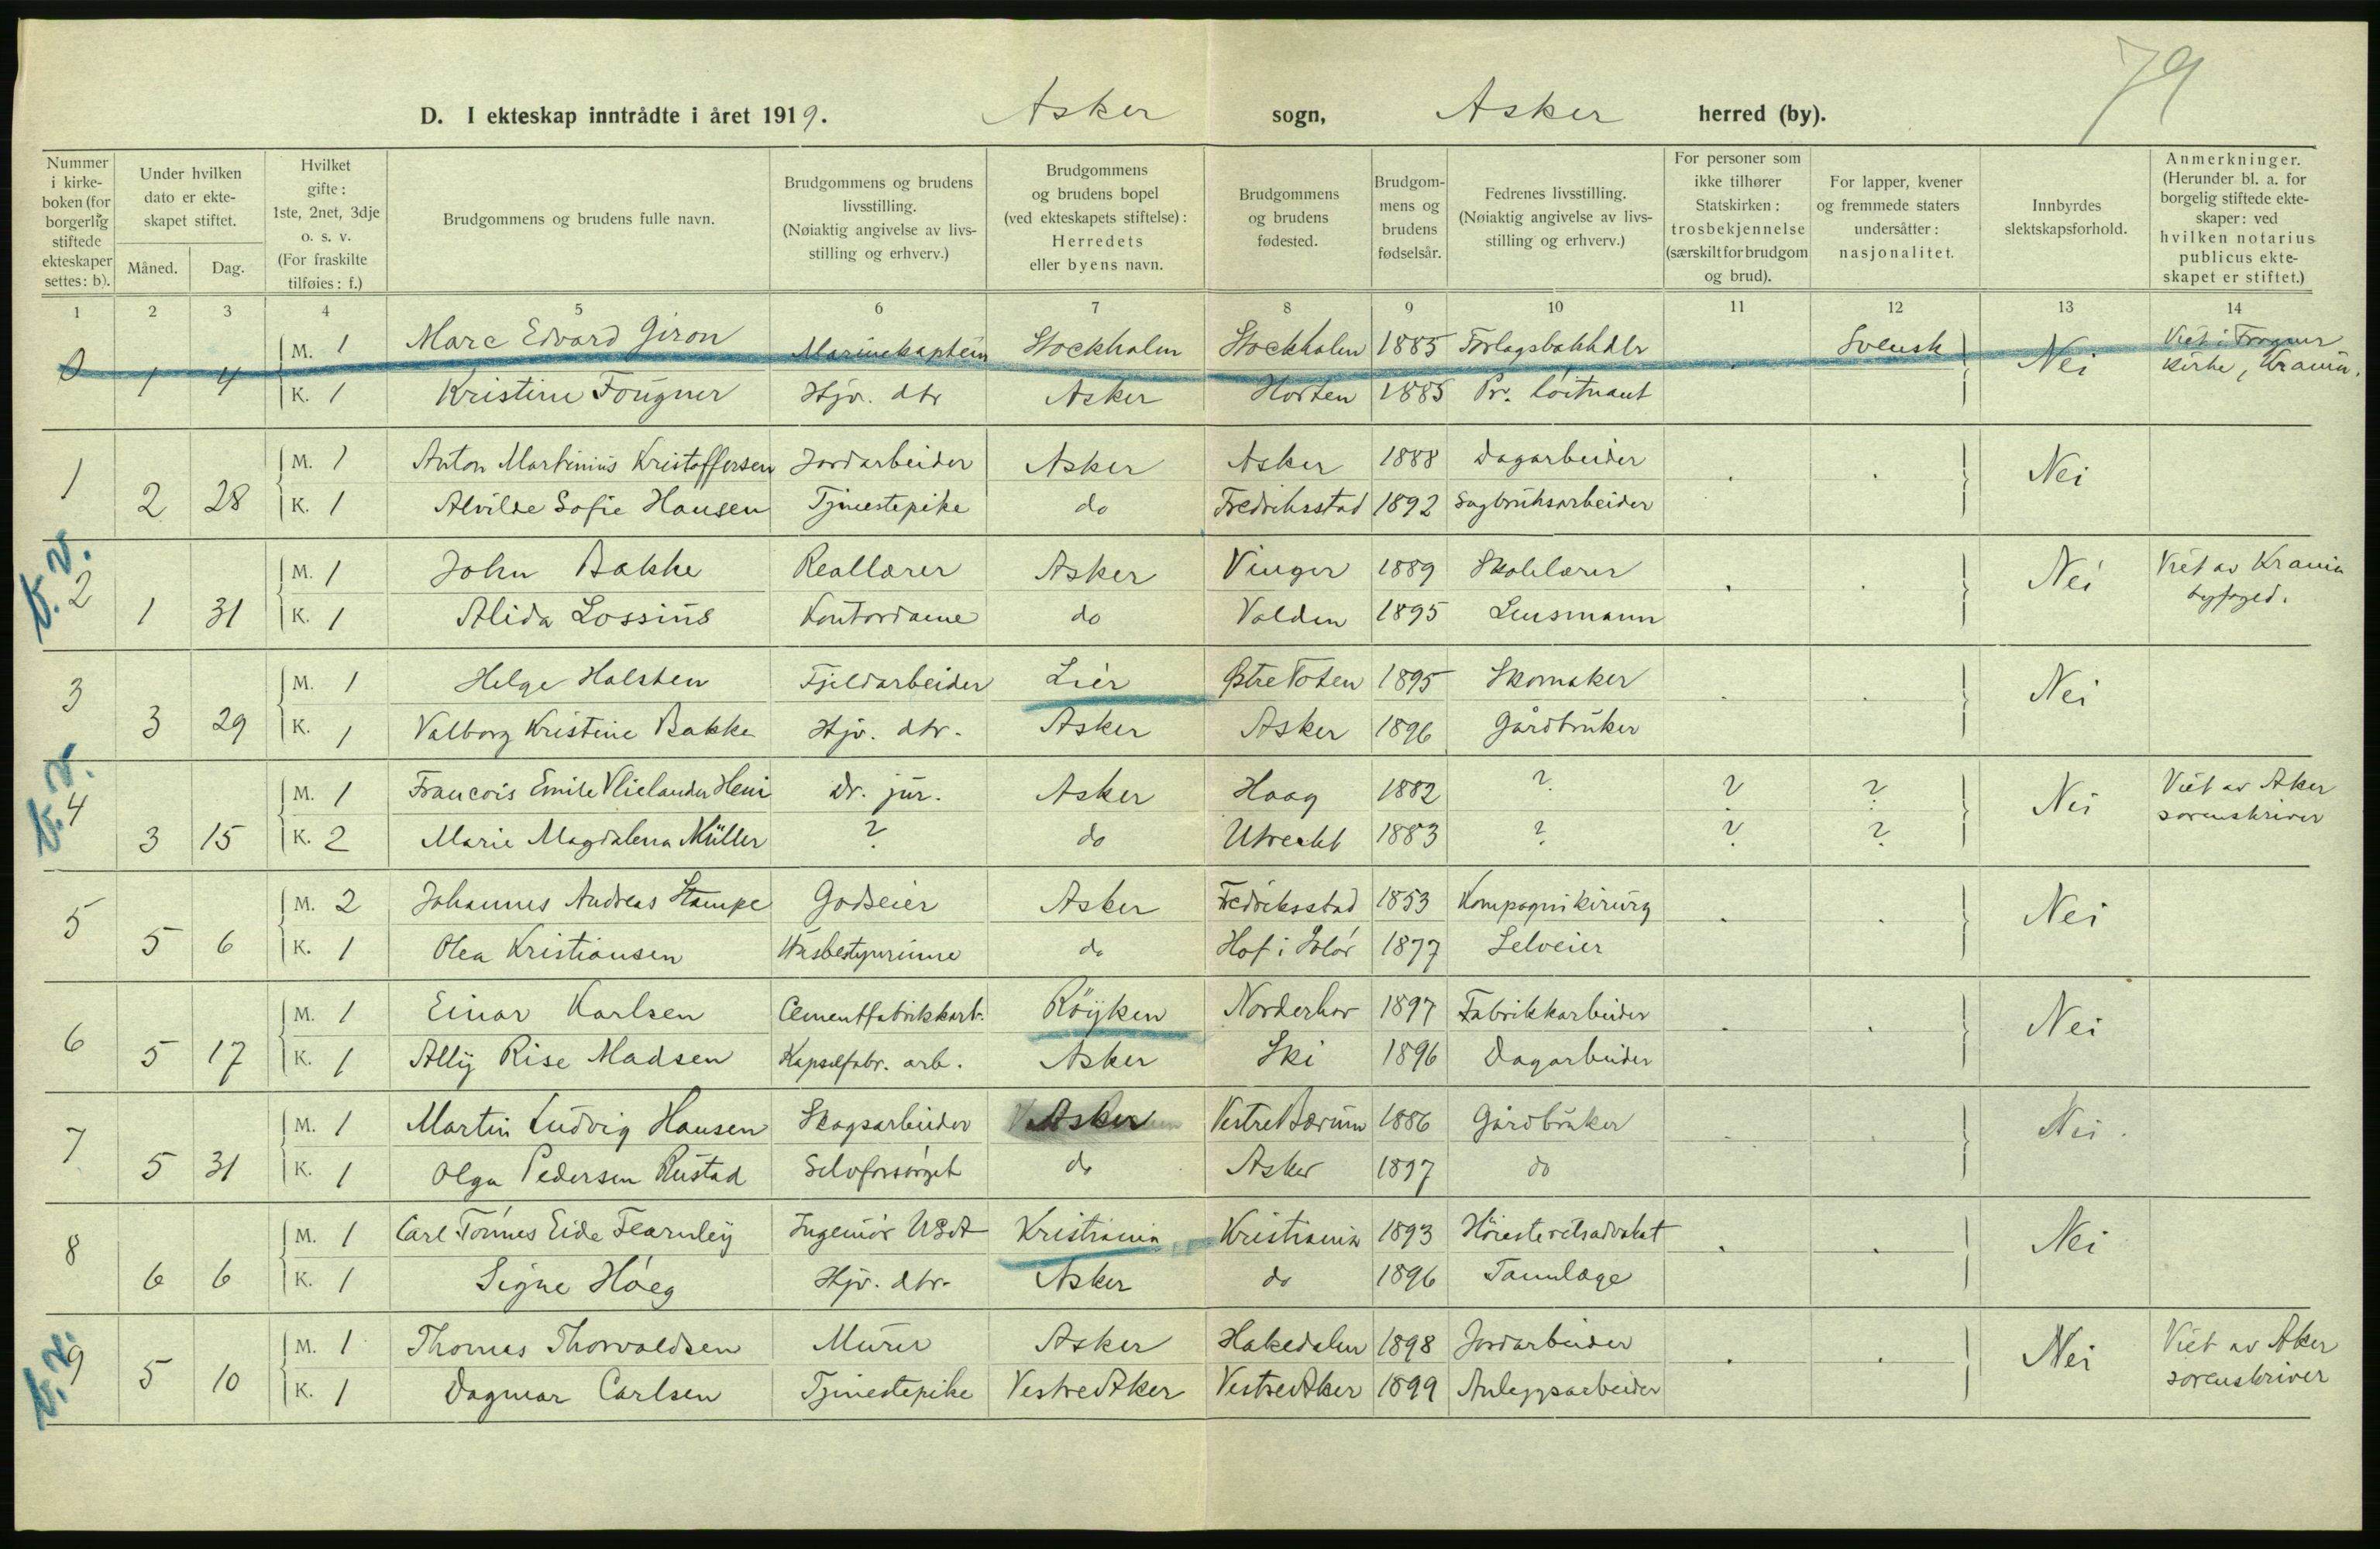 79
D. I ekteskap inntrådte i året 1919. Asker sogn, Asker herred (by).
Nummer i kirke-boken (for borgerlig stiftede ekteskaper settes: b).
Under hvilken dato er ekte-skapet stiftet.
Måned. Dag.
Hvilket gifte: 1ste, 2net, 3dje o. s. v. (For fraskilte tilføies: f.)
Brudgommens og brudens fulle navn.
Brudgommens og brudens livsstilling. (Nøiaktig angivelse av livs-stilling og erhverv.)
Brudgommens og brudens bopel (ved ekteskapets stiftelse): Herredets eller byens navn.
Brudgommens og brudens fødested.
Brudgom-mens og brudens fødselsår.
Fedrenes livsstilling. (Nøiaktig angivelse av livs-stilling og erhverv.)
For personer som ikke tilhører Statskirken: trosbekjennelse (særskilt for brudgom og brud).
For lapper, kvener og fremmede staters undersåtter: nasjonalitet.
Innbyrdes slektskapsforhold.
Anmerkninger. (Herunder bl. a. for borgelig stiftede ekte-skaper: ved hvilken notarius publicus ekte-skapet er stiftet.)
1 2 3 4 5 6 7 8 9 10 11 12 13 14
0 1 4 M. 1 Marc Edvard Giron Marinekaptein Stockholm Stockholm 1885 Svensk Nei Viet i Frogner kirke, Krania.
K. 1 Kristine Fougner Hjv. dtr Asker Horten 1885 Pr. löitnant
1 2 28 M. 1 Anton Martinius Kristoffersen Jordarbeider Asker Asker 1888 Dagarbeider . . Nei
K. 1 Alvilde Sofie Hansen Tjenestepike do Fredriksstad 1892 Sagbruksarbeider
b. v. 2 1 31 M. 1 John Bakke Reallærer Asker Vinger 1889 Skolelærer . . Nei Viet av Krania byfoged.
K. 1 Alida Lossius Kontordame do Valden 1895 Lensmann
3 3 29 M. 1 Helge Halsten Fjeldarbeider Lier Østre Toten 1895 Skomaker . . Nei
K. 1 Valborg Kristine Bakke Hjv. dtr. Asker Asker 1896 Gårdbruker
b. v. 4 3 15 M. 1 Francois Emile Vlielander Hein Dr. jur. Asker Haag 1882 ? ? ? Nei Viet av Aker sorenskriver
K. 2 Marie Magdalena Müller ? do Utrecht 1883 ? ? ?
5 5 6 M. 2 Johannes Andreas Stampe Godseier Asker Fredriksstad 1853 Kompagnikirurg . . Nei
K. 1 Olea Kristiansen Husbestyrerinne do Hof i Solör 1877 Selveier
6 5 17 M. 1 Einar Karlsen Cementfabrikkarb. Röyken Norderhov 1897 Fabrikkarbeider . . Nei
K. 1 Ally Rise Madsen Kapselfabr. arb. Asker Ski 1896 Dagarbeider
7 5 31 M. 1 Martin Ludvig Hansen Skogsarbeider Asker Vestre Bærum 1886 Gårdbruker . . Nei.
K. 1 Olga Pedersen Rustad Selvforsörget do Asker 1897 do
8 6 6 M. 1 Carl Tönnes Eide Fearnley Ingeniör USA Kristiania Kristiania 1893 Höiesteretsadvokat . . Nei
K. 1 Signe Höeg Hjv. dtr. Asker do 1896 Tannlæge
b. v. 9 5 10 M. 1 Thomas Thorvaldsen Murer Asker Hakedalen 1898 Jordarbeider . . Nei Viet av Aker sorenskriver
K. 1 Dagmar Carlsen Tjenestepike Vestre Aker Vestre Aker 1899 Anleggsarbeider